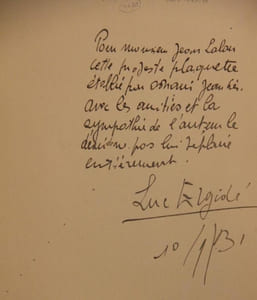 Pour monsieur Jean Lalou
cette modeste plaquette
établie par
avec les amitiés et la
sympathie de l'auteur le
pas lui déplaire
entièrement.
Luc Ergidé
10/1/31